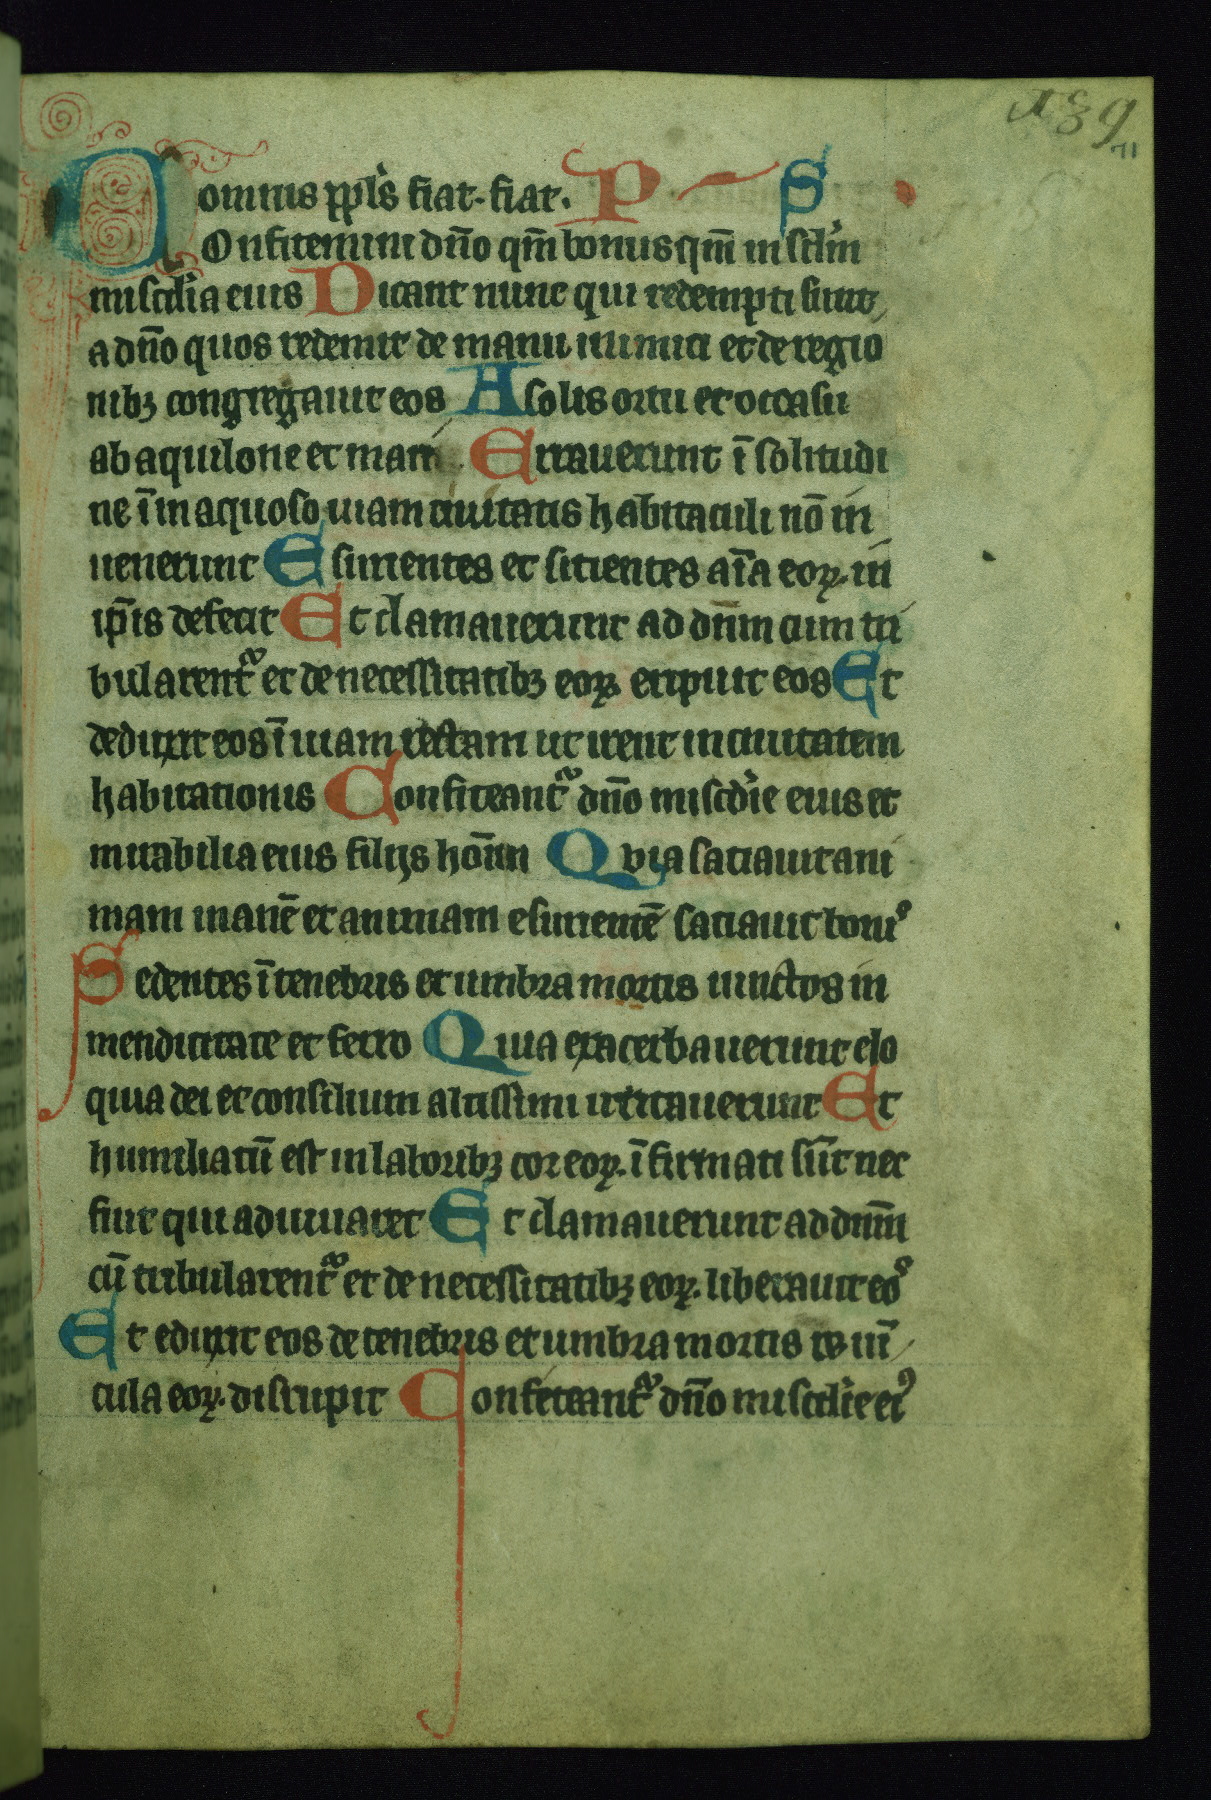 139
71
omnis ppl's fiat. fiat. P S
COnfitemini dn̄o qm̄ bonus qm̄ in sclm̄
miscdia eius Dicant nunc qui redempti sunt
a dn̄o quos redemit de manu inimici et de regio
nibꝫ congregauit eos A solis ortu et occasu
ab aquilone et mari Errauerunt ī solitudi
ne ī inaquoso uiam ciuitatis habitaculi nō in
uenerunt Esurientes et sitientes aīa eoꝝ in
ip̄is defecit Et clamauerunt ad dn̄m cum tri
bularent᷑ et de necessitatibꝫ eoꝝ eripuit eos Et
deduxit eos ī uiam rectam ut irent in ciuitatem
habitationis Confiteant᷑ dn̄o miscdie eius et
mirabilia eius filijs hoīm Quia satiauit ani
mam inanē et animam esurientē satiauit bonis
Sedentes ī tenebris et umbra mortis uinctos in
mendicitate et ferro Quia exacerbauerunt elo
quia dei et consilium altissimi irritauerunt Et
humiliatū est in laboribꝫ cor eoꝝ īfirmati sūt nec
fuit qui adiuuaret Et clamauerunt ad dn̄m
cū tribularent᷑ et de necessitatibꝫ eoꝝ liberauit eos
Et eduxit eos de tenebris et umbra mortis et uī
cula eoꝝ disrupit Confiteant᷑ dn̄o miscdie eiꝰ